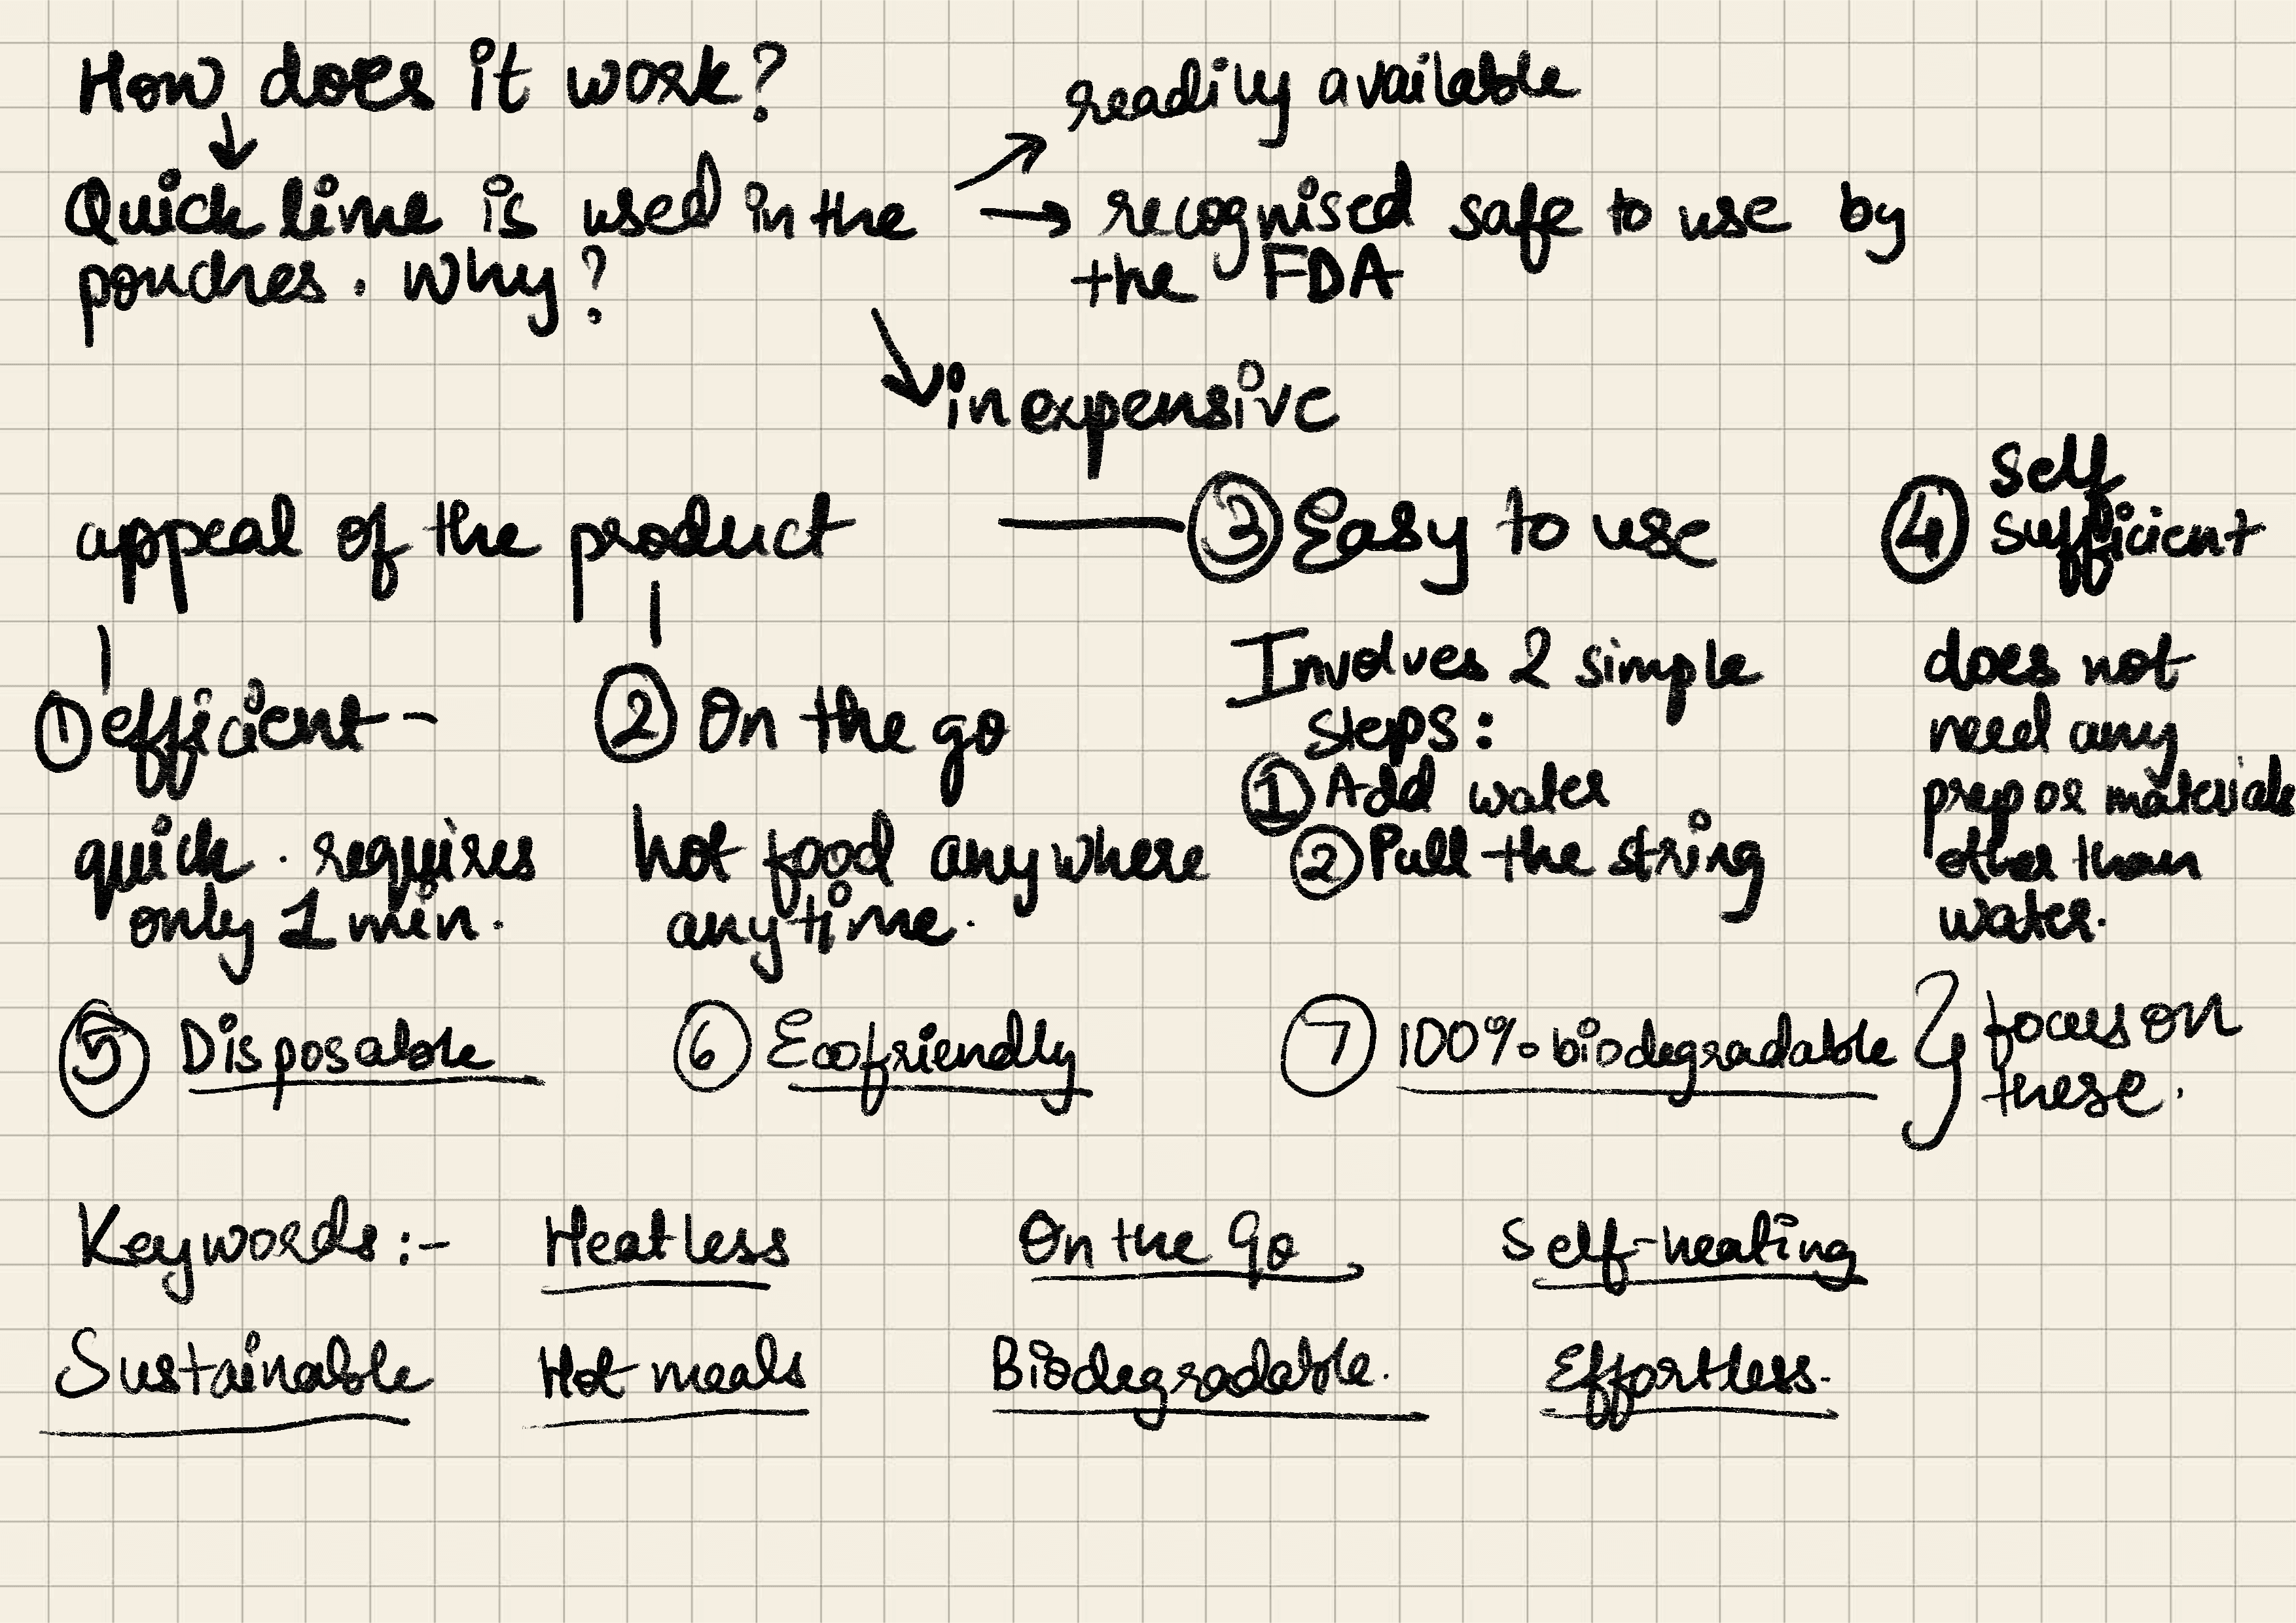 How does it work?
readily available
Quick lime is used in the
pouches. Why?
recognised safe to use by
the FDA
inexpensive
appeal of the product
① efficient -
quick. requires
only 1 min.
② On the go
hot food anywhere
anytime.
③ Easy to use
Involves 2 simple
steps:
① Add water
② Pull the string
④ Self
sufficient
does not
need any
prep or materials
other than
water.
⑤ Disposable
⑥ Ecofriendly
⑦ 100% biodegradable
focus on
these.
Keywords:- Heatless On the go Self-heating
Sustainable Hot meals Biodegradable. Effortless.